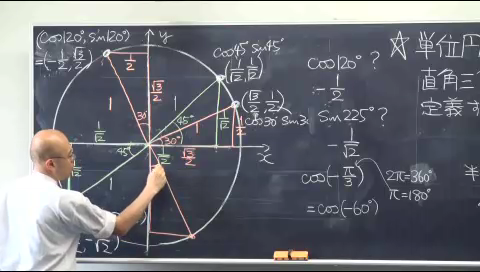 (cos120°, sin120°)
=(-1/2, √3/2)
y
x
1/2
√3/2
30°
1
1
1
1
45°
30°
45°
1/√2
1/√2
1/2
√3/2
1/√2
1/√2
cos45° sin45°
(1/√2, 1/√2)
(√3/2, 1/2)
cos30° sin3
cos120°?
-1/2
sin225°?
-1/√2
cos(-π/3)
=cos(-60°)
2π=360°
π=180°
☆単位円
直角三
定義す
半